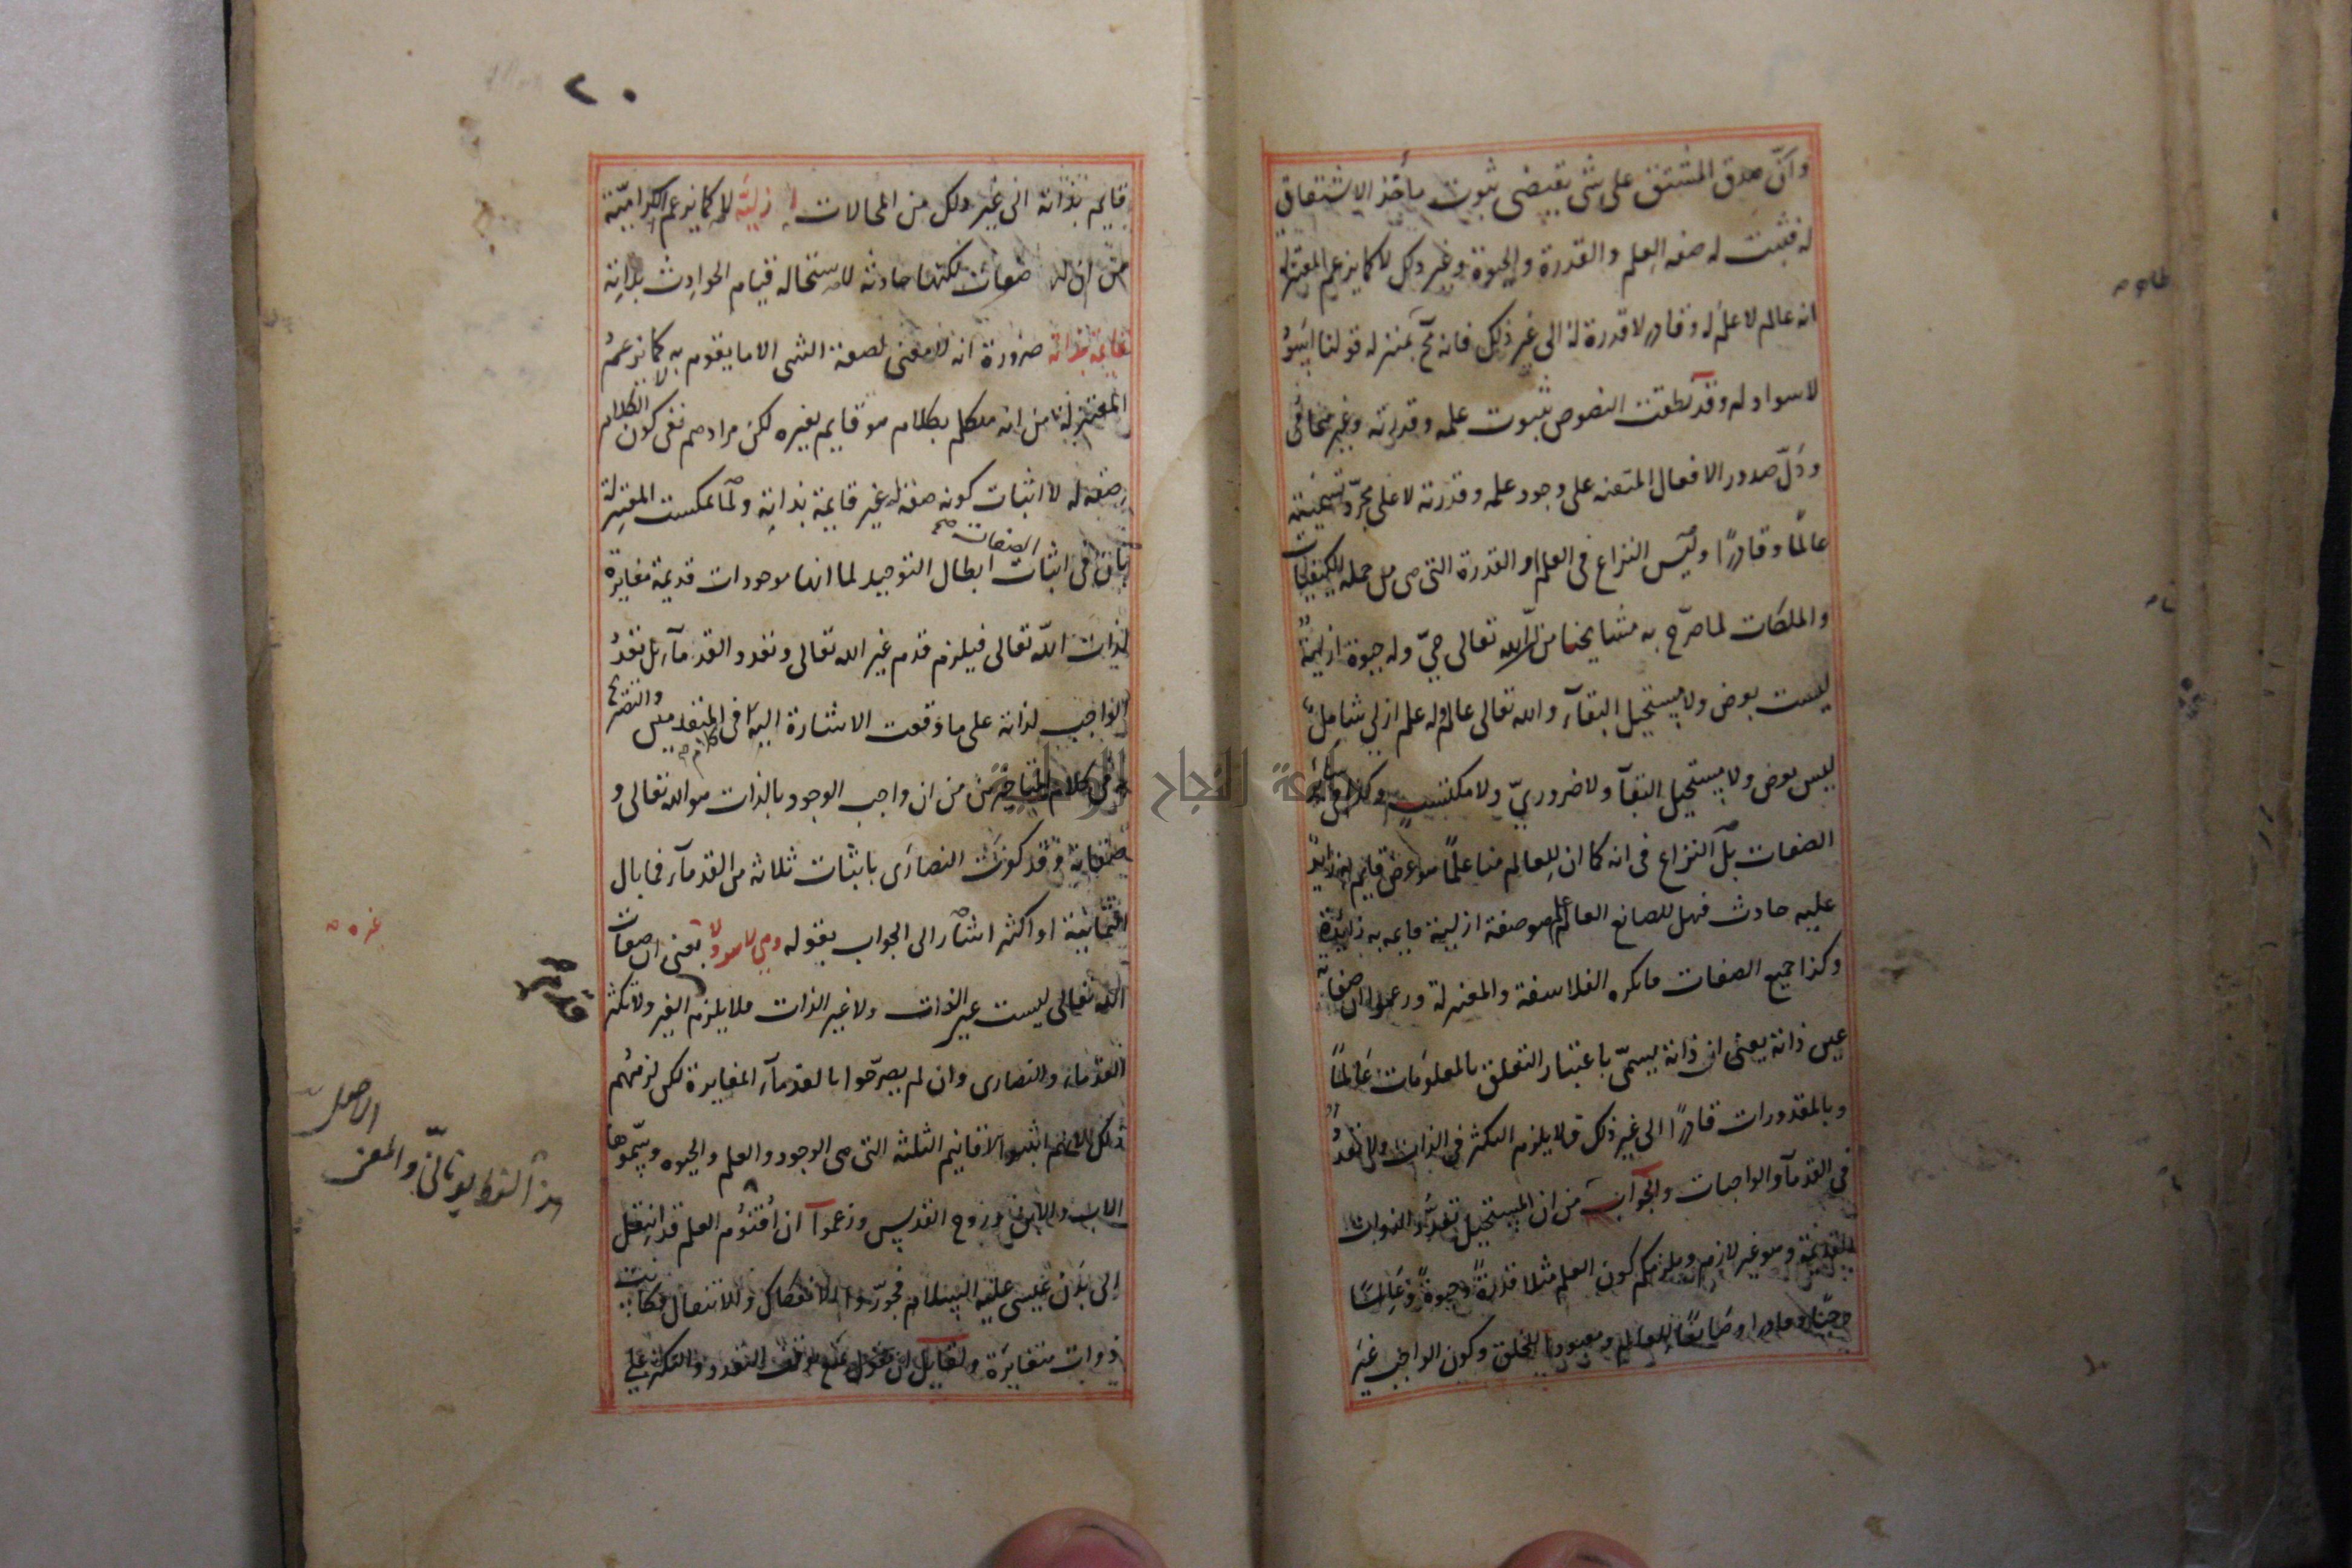 وان صدق المشتق على شئ يقتضى ثبوت مأخذ الاشتقاق
له فثبت له صفه العلم والقدرة والحيوة وغير ذلك لا كما يزعم المعتزلة
انه عالم لا علم له وقادر لا قدرة له الى غير ذلك فانه مح بمنزله قولنا اسود
لا سواد له وقد نطقت النصوص بثبوت علمه وقدرته وغيرهما فى
ودل صدور الافعال المتقنه على وجود علمه وقدرته لا على مجرد تسميته
عالما وقادرا وليس النزاع فى العلم او القدرة التى هى من جمله الكيفيات
والملكات لما صرح به مشايخنا من ان الله تعالى حى وله حيوة ازلية
ليست بعرض ولا يستحيل البقآء والله تعالى عالم وله علم ازلى شامل
ليس بعرض ولا يستحيل البقآ ولا ضرورى ولا مكتسب وكذا فى سائر
الصفات بل النزاع فى انه كما ان للعالم منا علما هو عرض قايم به زايد
عليه حادث فهل للصانع العالم علم هو صفة ازلية قايمه به زايدة
وكذا جميع الصفات فانكره الفلاسفة والمعتزلة وزعموا ان صفاته
عين ذاته يعنى ان ذاته يسمى باعتبار التعلق بالمعلومات عالما
وبالمقدورات قادرا الى غير ذلك فلا يلزم التكثر فى الذات ولا تعدد
فى القدمآ والواجبات والجواب من ان المستحيل تعدد الذوات
القديمة وهو غير لازم ويلزمكم كون العلم مثلا قدرة وحيوة وعالما
وحيا وقادرا وصانعا للعالم ومعبودا للخلق وكون الواجب غير
٢٠
قايم بذاته الى غير ذلك من المحالات ازلية لا كما يزعم الكرامية
من ان له صفات لكنها حادثه لاستحاله قيام الحوادث بذاته
قايمة بذاته ضرورة انه لا معنى لصفة الشى الا ما يقوم به لا كما يزعم
المعتزلة من انه متكلم بكلام هو قايم بغيره لكن مرادهم نفى كون الكلام
صفه له لا اثبات كونه صفة له غير قايمة بذاته ولما تمسكت المعتزلة
بان فى اثبات الصفات صح ابطال التوحيد لما انها موجودات قديمة مغايرة
لذات الله تعالى فيلزم قدم غير الله تعالى وتعدد القدمآء بل تعدد
الواجب لذاته على ما وقعت الاشارة اليه فى كلام المتقدمين والتصريح
به فى كلام المتاخرين من ان واجب الوجود بالذات هو الله تعالى و
صفاته وقد كفرت النصارى باثبات ثلاثه من القدمآء فما بال
الثمانية او اكثر اشار الى الجواب بقوله وهى لا هو ولا بمعنى ان صفات
الله تعالى ليست عين الذات ولا غير الذات فلا يلزم الغير ولا تكثر
القدمآء والنصارى وان لم يصرحوا بالقدمآء المغايرة لكن لزمهم
ذلك لانهم اثبتوا الاقانيم الثلثه التى هى الوجود والعلم والحيوه وسموها
الاب والابن وروح القدس وزعموا ان اقنوم العلم قد انتقل
الى بدن عيسى عليه السلام فجوزوا الانفكاك والانتقال فكانت
ذوات متغايرة ولقايل ان يقول يمنع توقف التعدد والتكثر على
غيره
قدم
الاصل